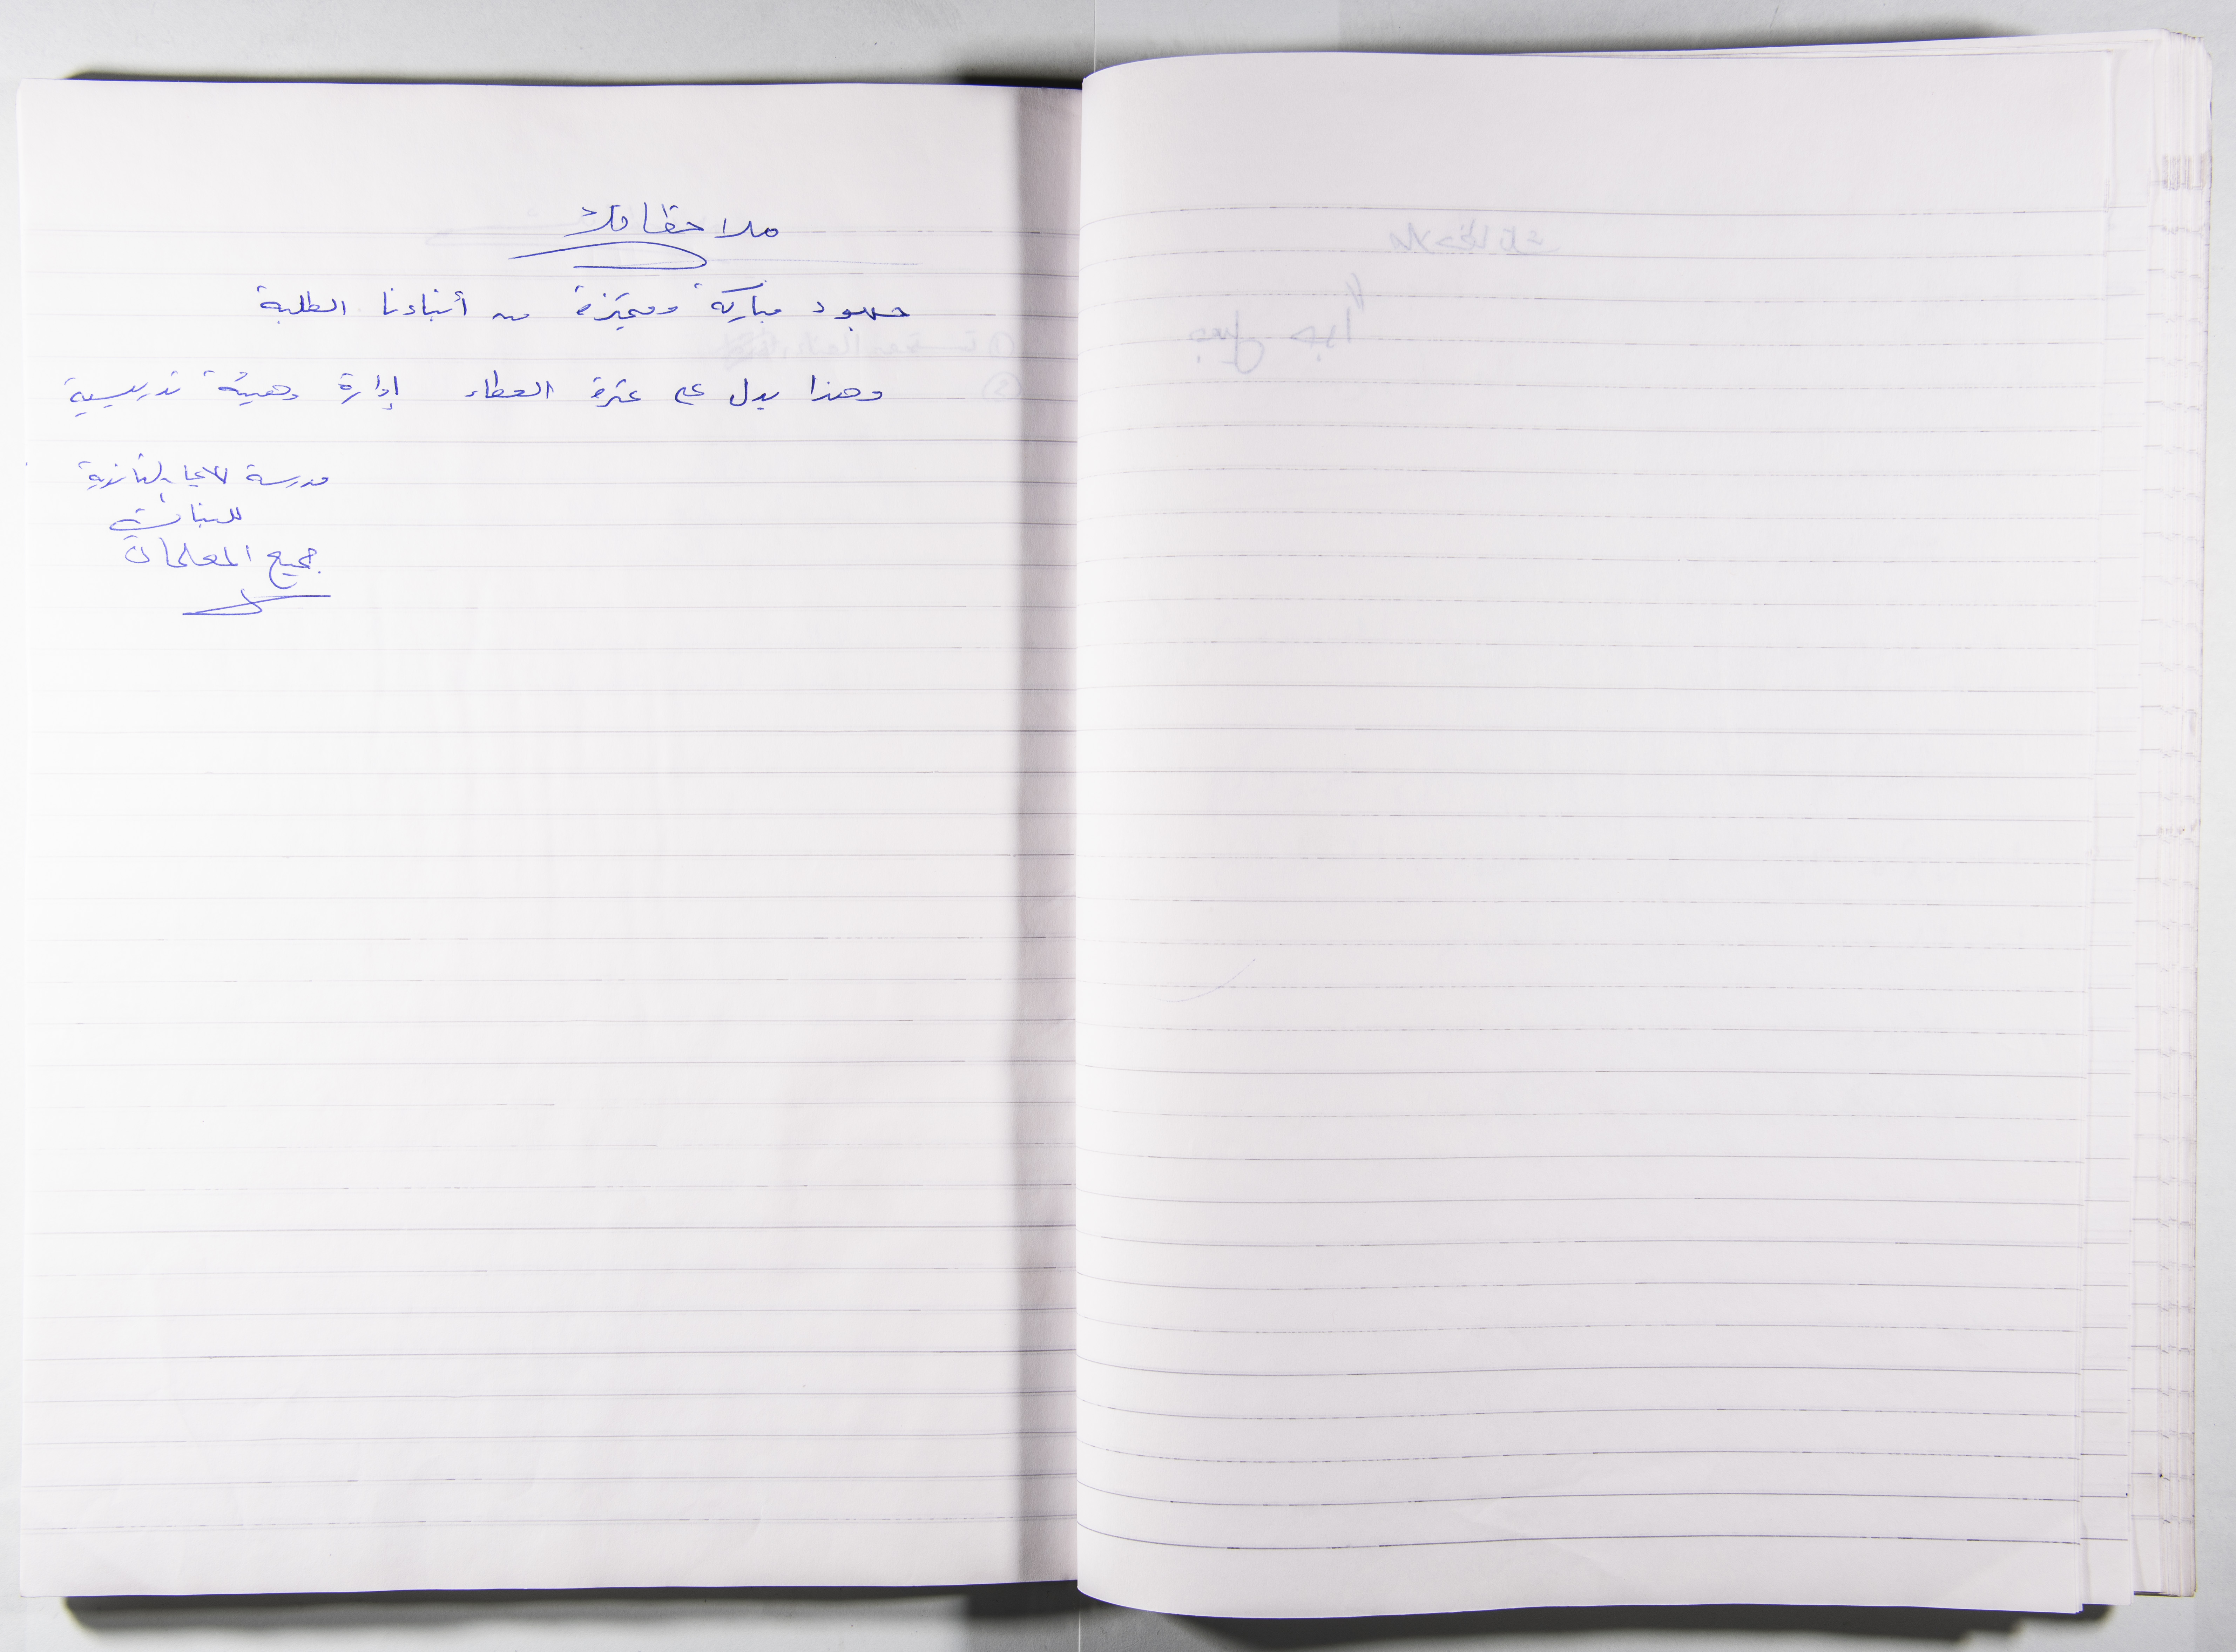 ملاحظاتك
جهود مباركة ومتميزة من أبناءنا الطلبة
وهذا يدل على عترة العطاء إدارة وهيئة تدريسية
مدرسة الثانوية
للبنات
جميع المعلمات